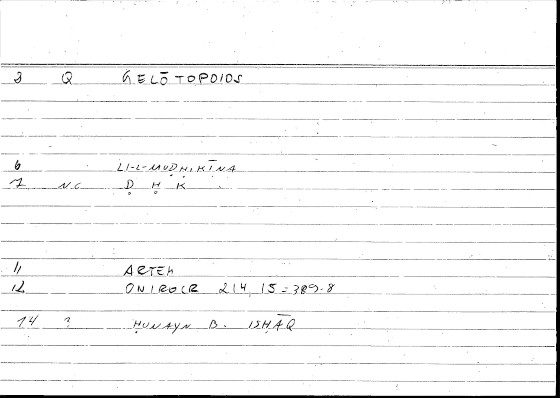 3 Q GELŌTOPOIOS
6 LI-L-MUḌḤIKĪNA
7 N.C Ḍ Ḥ K
11 ARTEM
12 ONIROCR 214, 15 = 389.8
14 ? ḤUNAYN B. ISḤĀQ